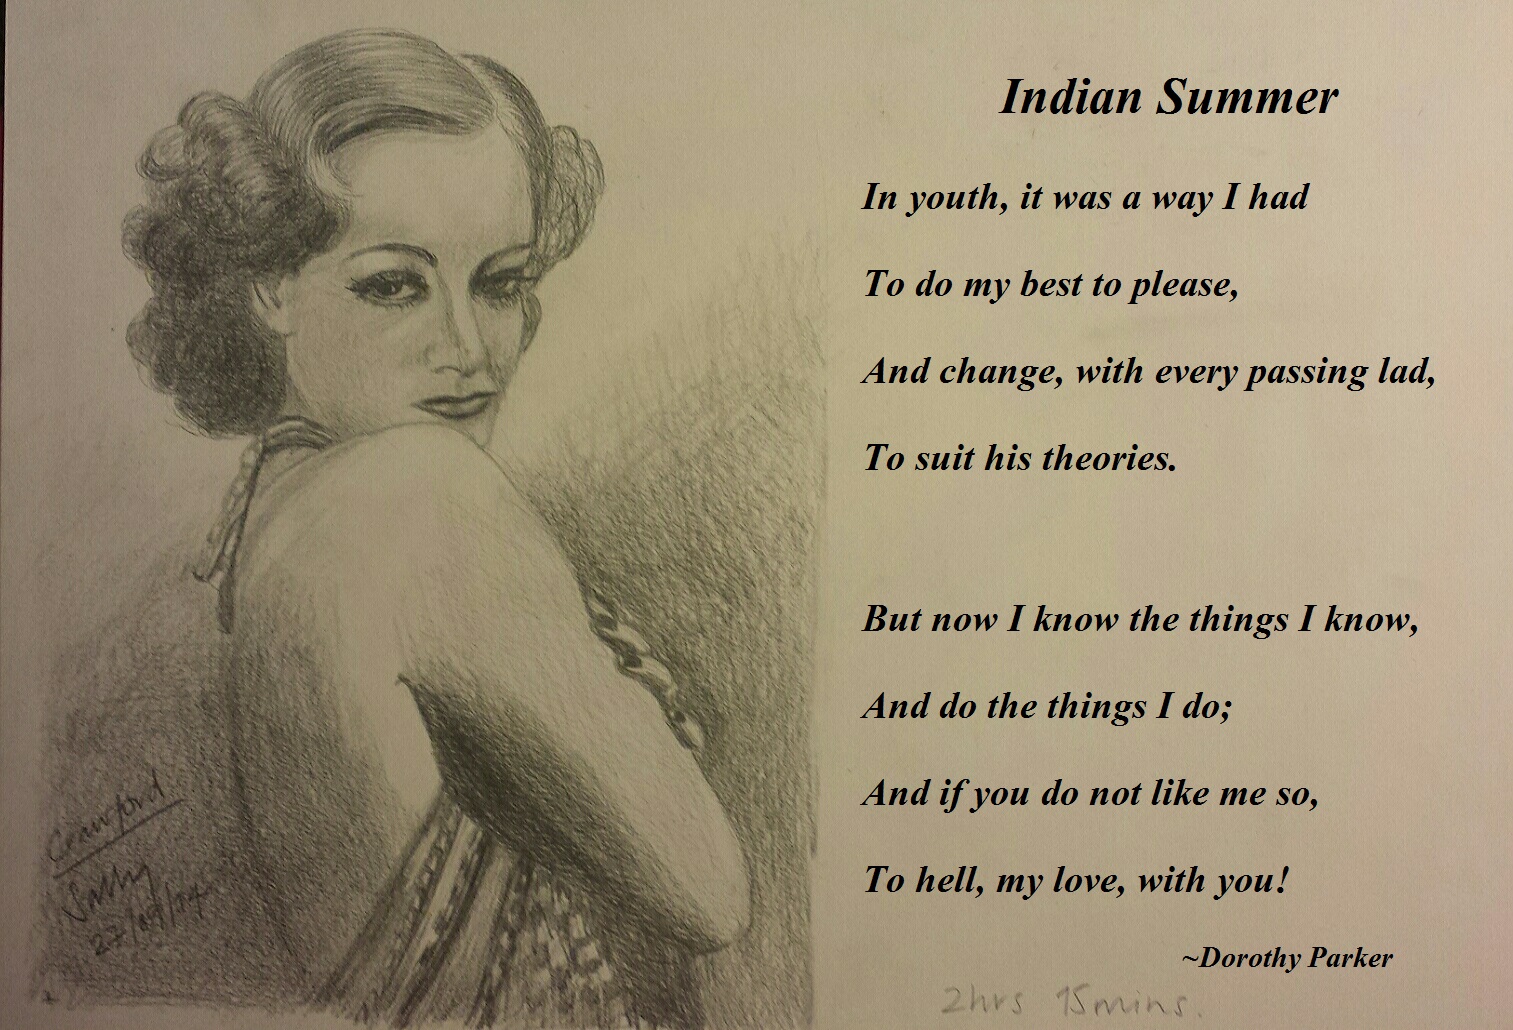 Indian Summer
In youth, it was a way I had
To do my best to please,
And change, with every passing lad,
To suit his theories.
But now I know the things I know,
And do the things I do;
And if you do not like me so,
To hell, my love, with you!
~Dorothy Parker
Crawford
2hrs 15mins.